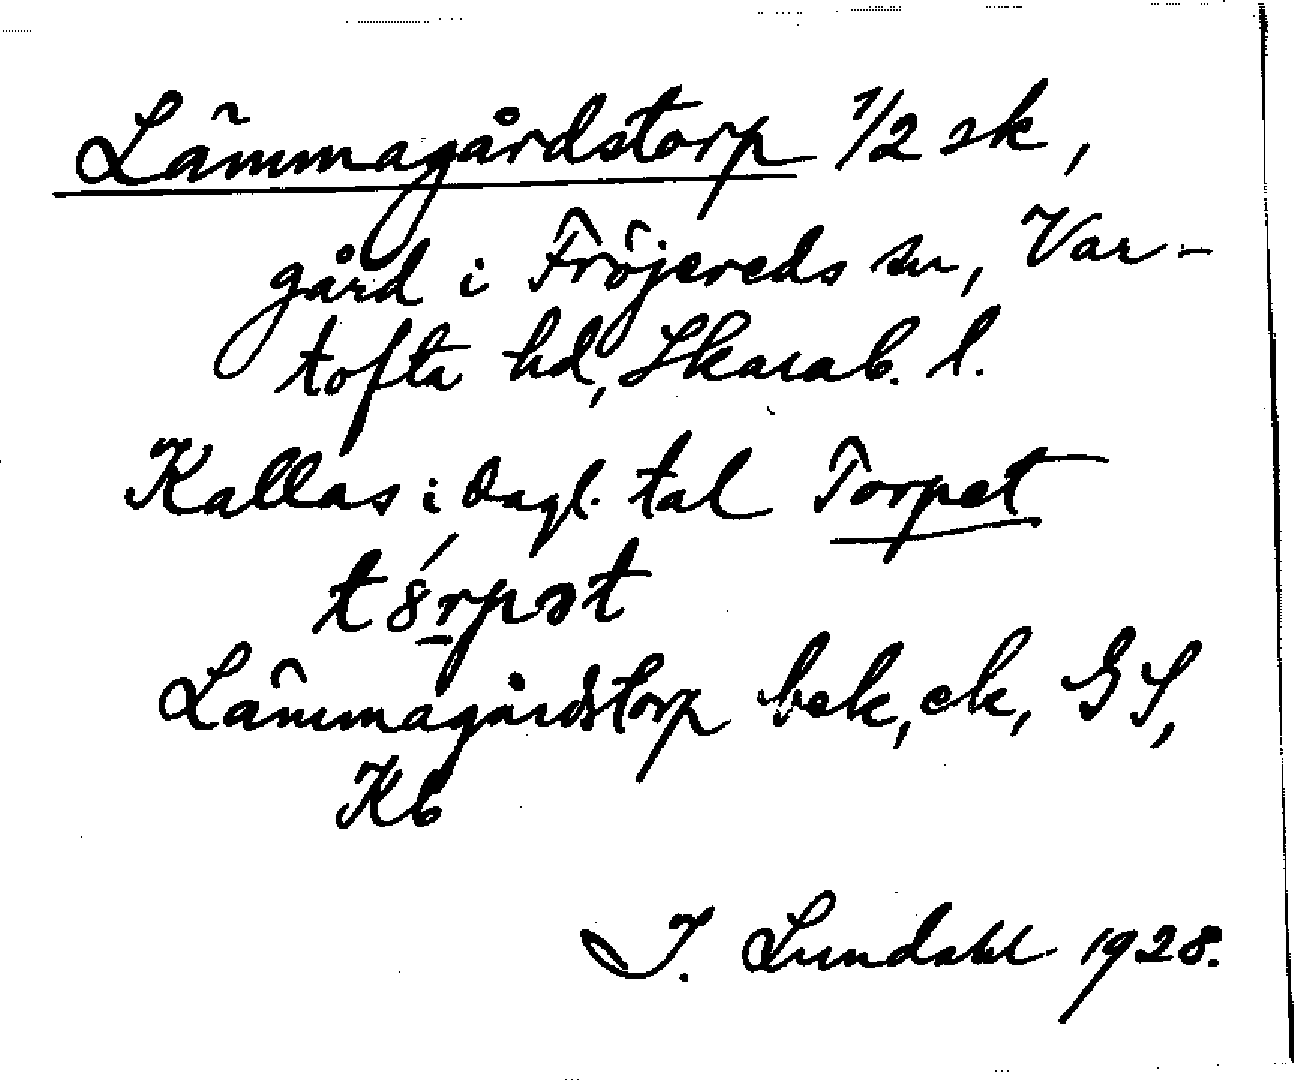 Lämmagårdstorp 1/2 sk,
gård i Fröjereds sn, Var-
tofta hd, Skarab. l.
Kallas i dagl. tal Torpet
tȣ́rpət
Lämmagårdstorp bek, ek, GS,
Kb
I. Lundahl 1928.